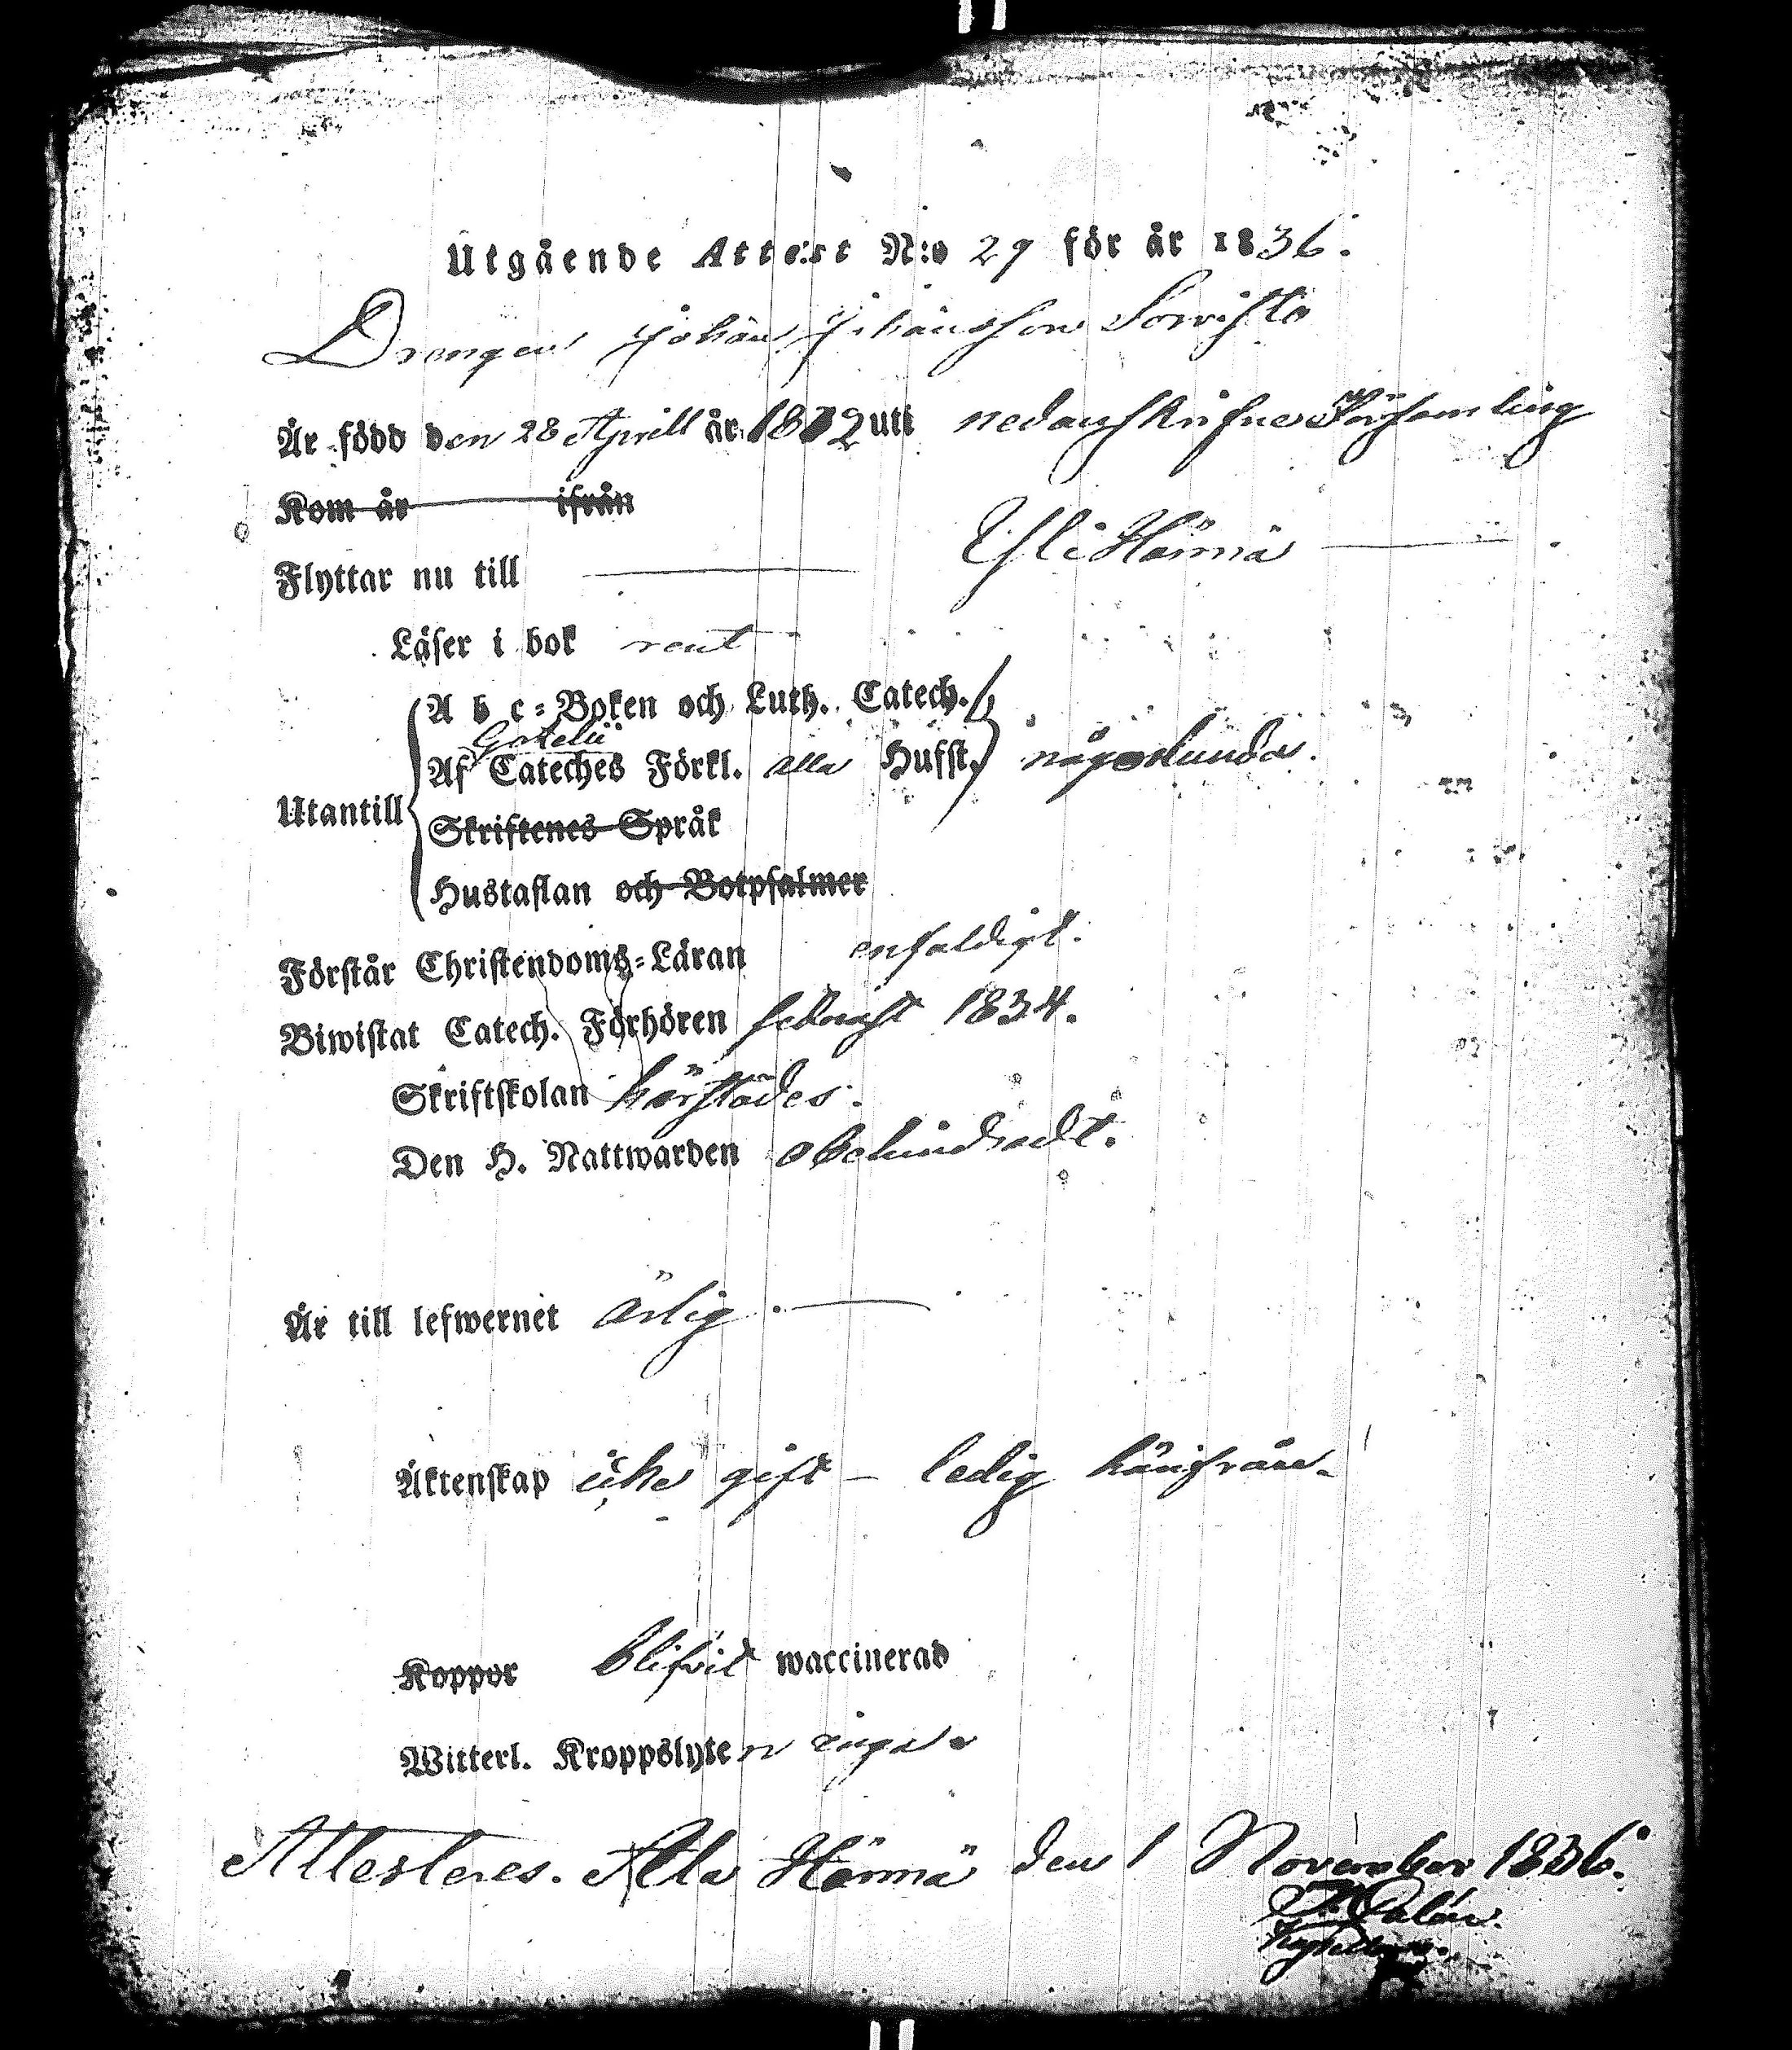 Utgående Attest N:o 29 för år 1836.
Drengen Johan Johansson Sorvisto
Är född den 28 Aprill år 1812 uti nedanskrifne Församling
Kom år ifrån
Flyttar nu till Ylihärmä
Läser i bok rent
A b c-Boken och Luth. Catech.
Gezelii
Af Cateches Förkl. alla Hufst. någorlunda.
Utantill
Skriftenes Språk
Hustaflan och Botpsalmer
Förstår Christendoms-Läran enfaldigt.
Biwistat Catech. Förhören sednast 1834.
Skriftskolan härstädes.
Den H. Nattwarden obehindradt.
Är till lefwernet ärlig.
Äktenskap icke gift - ledig härifrån.
Koppor blifvit waccinerad
Witterl. Kroppslyten inga.
Attesteres. Ala Härmä den 1 November 1836.